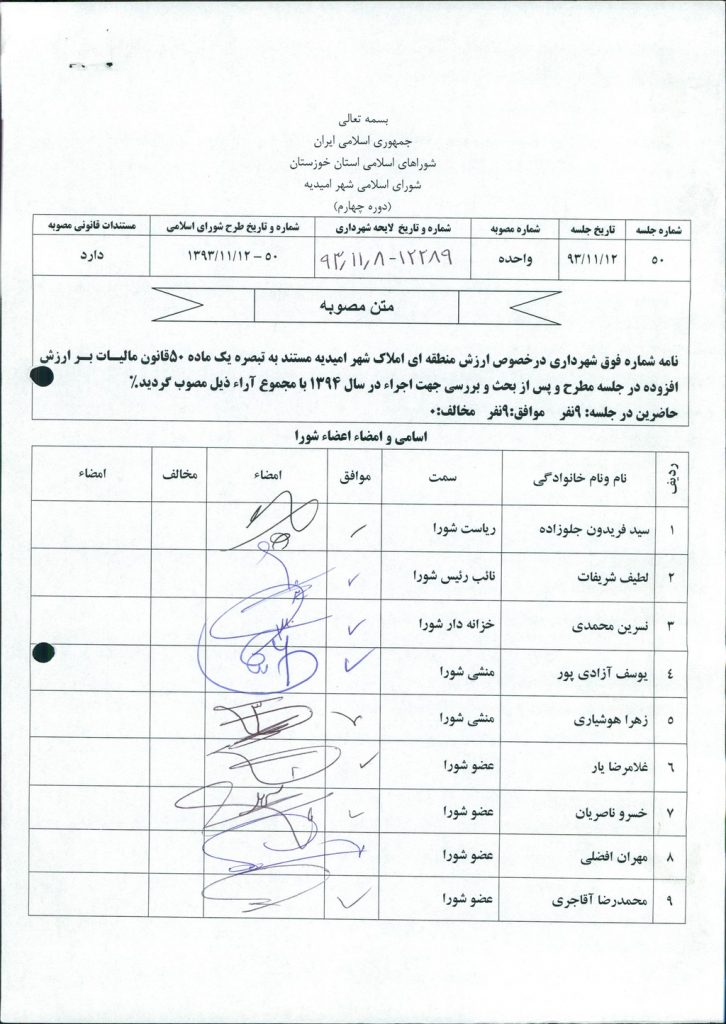 بسمه تعالی
جمهوری اسلامی ایران
شوراهای اسلامی استان خوزستان
شورای اسلامی شهر امیدیه
(دوره چهارم)
شماره جلسه تاریخ جلسه شماره مصوبه شماره و تاریخ لایحه شهرداری شماره و تاریخ طرح شورای اسلامی مستندات قانونی مصوبه
۵۰ ۹۳/۱۱/۱۲ واحده ۹۳٫۱۱٫۸-۱۲۲۸۹ ۵۰ – ۱۳۹۳/۱۱/۱۲ دارد
متن مصوبه
نامه شماره فوق شهرداری درخصوص ارزش منطقه ای املاک شهر امیدیه مستند به تبصره یک ماده ۵۰قانون مالیـات بـر ارزش
افزوده در جلسه مطرح و پس از بحث و بررسی جهت اجراء در سال ۱۳۹۴ با مجموع آراء ذیل مصوب گردید.%
حاضرین در جلسه: ۹نفر موافق:۹نفر مخالف:۰
اسامی و امضاء اعضاء شورا
ردیف نام ونام خانوادگی سمت موافق امضاء مخالف امضاء
۱ سید فریدون جلوزاده ریاست شورا
۲ لطیف شریفات نائب رئیس شورا
۳ نسرین محمدی خزانه دار شورا
٤ یوسف آزادی پور منشی شورا
۵ زهرا هوشیاری منشی شورا
٦ غلامرضا یار عضو شورا
۷ خسرو ناصریان عضو شورا
۸ مهران افضلی عضو شورا
۹ محمدرضا آقاجری عضو شورا